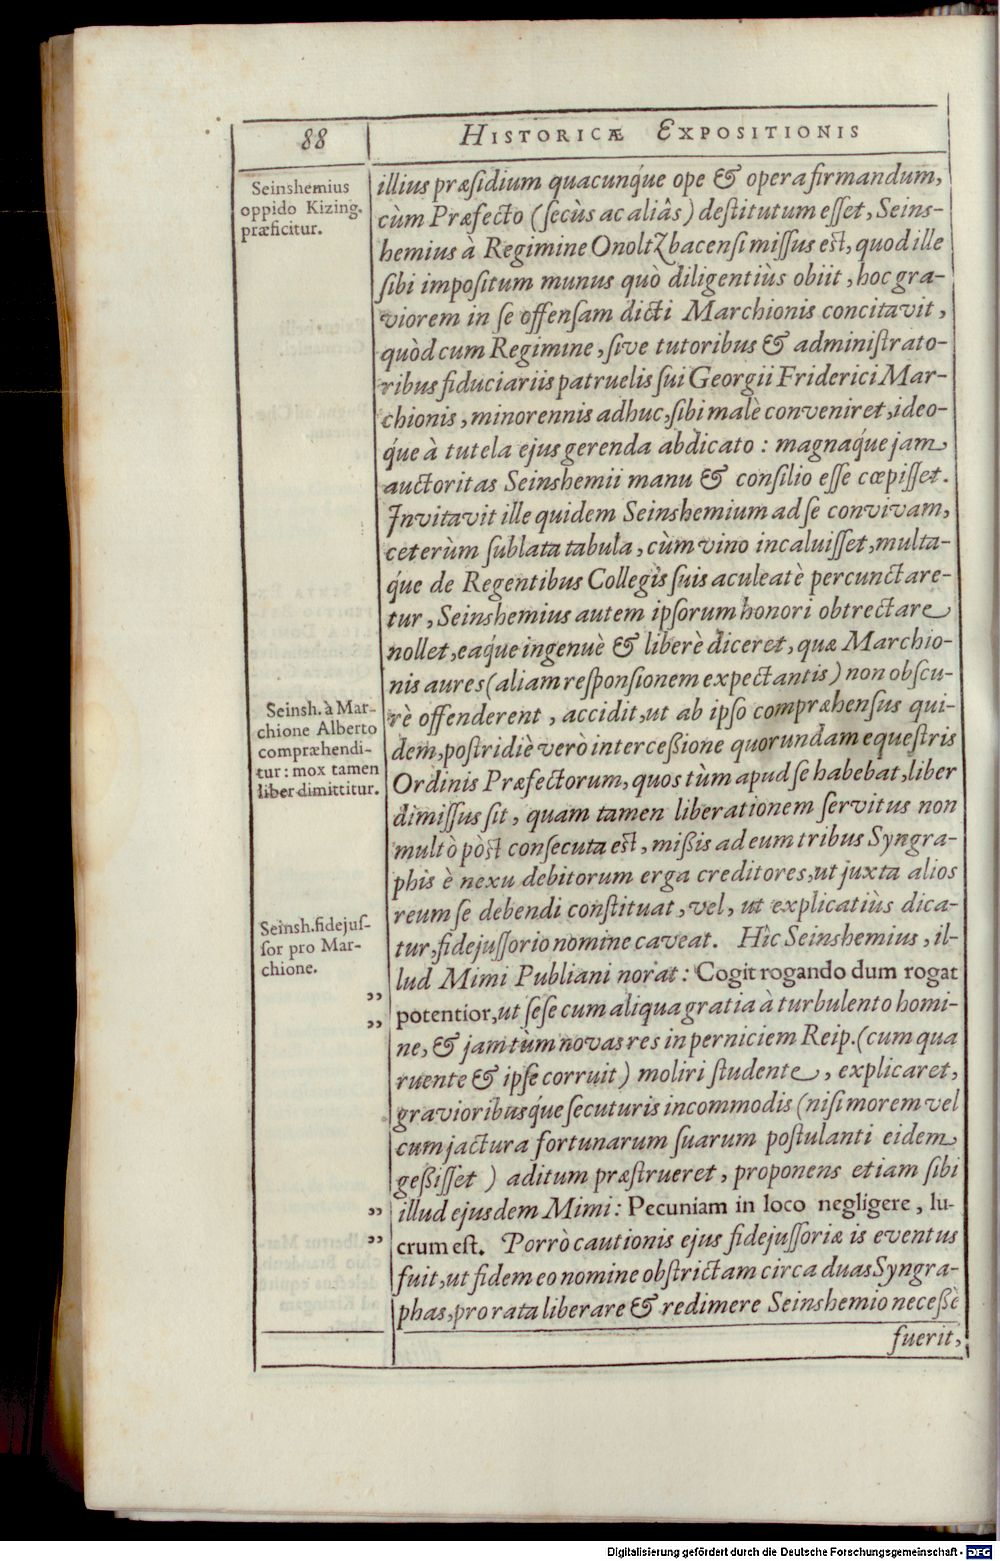 88
HISTORICÆ EXPOSITIONIS
Seinshemius
oppido Kizing.
præficitur.
illius præſidium quacunq́ue ope & opera firmandum,
cùm Præfecto (ſecùs ac aliâs) deſtitutum eſſet, Seins-
hemius à Regimine Onoltzbacenſi miſſus est, quod ille
ſibi impoſitum munus quò diligentiùs obiit, hoc gra-
viorem in ſe offenſam dicti Marchionis concitavit,
quòd cum Regimine, ſive tutoribus & adminiſtrato-
ribus fiduciariis patruelis ſui Georgii Friderici Mar-
chionis, minorennis adhuc, ſibi malè conveniret, ideo-
q́ue à tutela ejus gerenda abdicato: magnaq́ue jam
auctoritas Seinshemii manu & conſilio eſſe cœpiſſet.
Invitavit ille quidem Seinshemium ad ſe convivam,
ceterùm ſublata tabula, cùm vino incaluiſſet, multa-
q́ue de Regentibus Collegis ſuis aculeatè percunctare-
tur, Seinshemius autem ipſorum honori obtrectare
nollet, eaq́ue ingenuè & liberè diceret, quæ Marchio-
nis aures (aliam reſponſionem expectantis) non obſcu-
Seinsh. à Mar-
chione Alberto
compræhendi-
tur: mox tamen
liber dimittitur.
rè offenderent, accidit, ut ab ipſo compræhenſus qui-
dem, poſtridiè verò interceßione quorundam equeſtris
Ordinis Præfectorum, quos tùm apud ſe habebat, liber
dimiſſus ſit, quam tamen liberationem ſervitus non
multò pòſt conſecuta eſt, mißis ad eum tribus Syngra-
phis è nexu debitorum erga creditores, ut juxta alios
reum ſe debendi conſtituat, vel, ut explicatiùs dica-
Seinsh. fidejuſ-
ſor pro Mar-
chione.
tur, fidejuſſorio nomine caveat. Hîc Seinshemius, il-
lud Mimi Publiani norat: Cogit rogando dum rogat
„
potentior, ut ſeſe cum aliqua gratia à turbulento homi-
„
ne, & jam tùm novas res in perniciem Reip. (cum qua
ruente & ipſe corruit) moliri ſtudente, explicaret,
gravioribusq́ue ſecuturis incommodis (niſi morem vel
cum jactura fortunarum ſuarum poſtulanti eidem
geßiſſet) aditum præſtrueret, proponens etiam ſibi
„
illud ejusdem Mimi: Pecuniam in loco negligere, lu-
„
crum eſt. Porrò cautionis ejus fidejuſſoriæ is eventus
fuit, ut fidem eo nomine obſtrictam circa duas Syngra-
phas, pro rata liberare & redimere Seinshemio neceßè
fuerit,
Digitalisierung gefördert durch die Deutsche Forschungsgemeinschaft - DFG